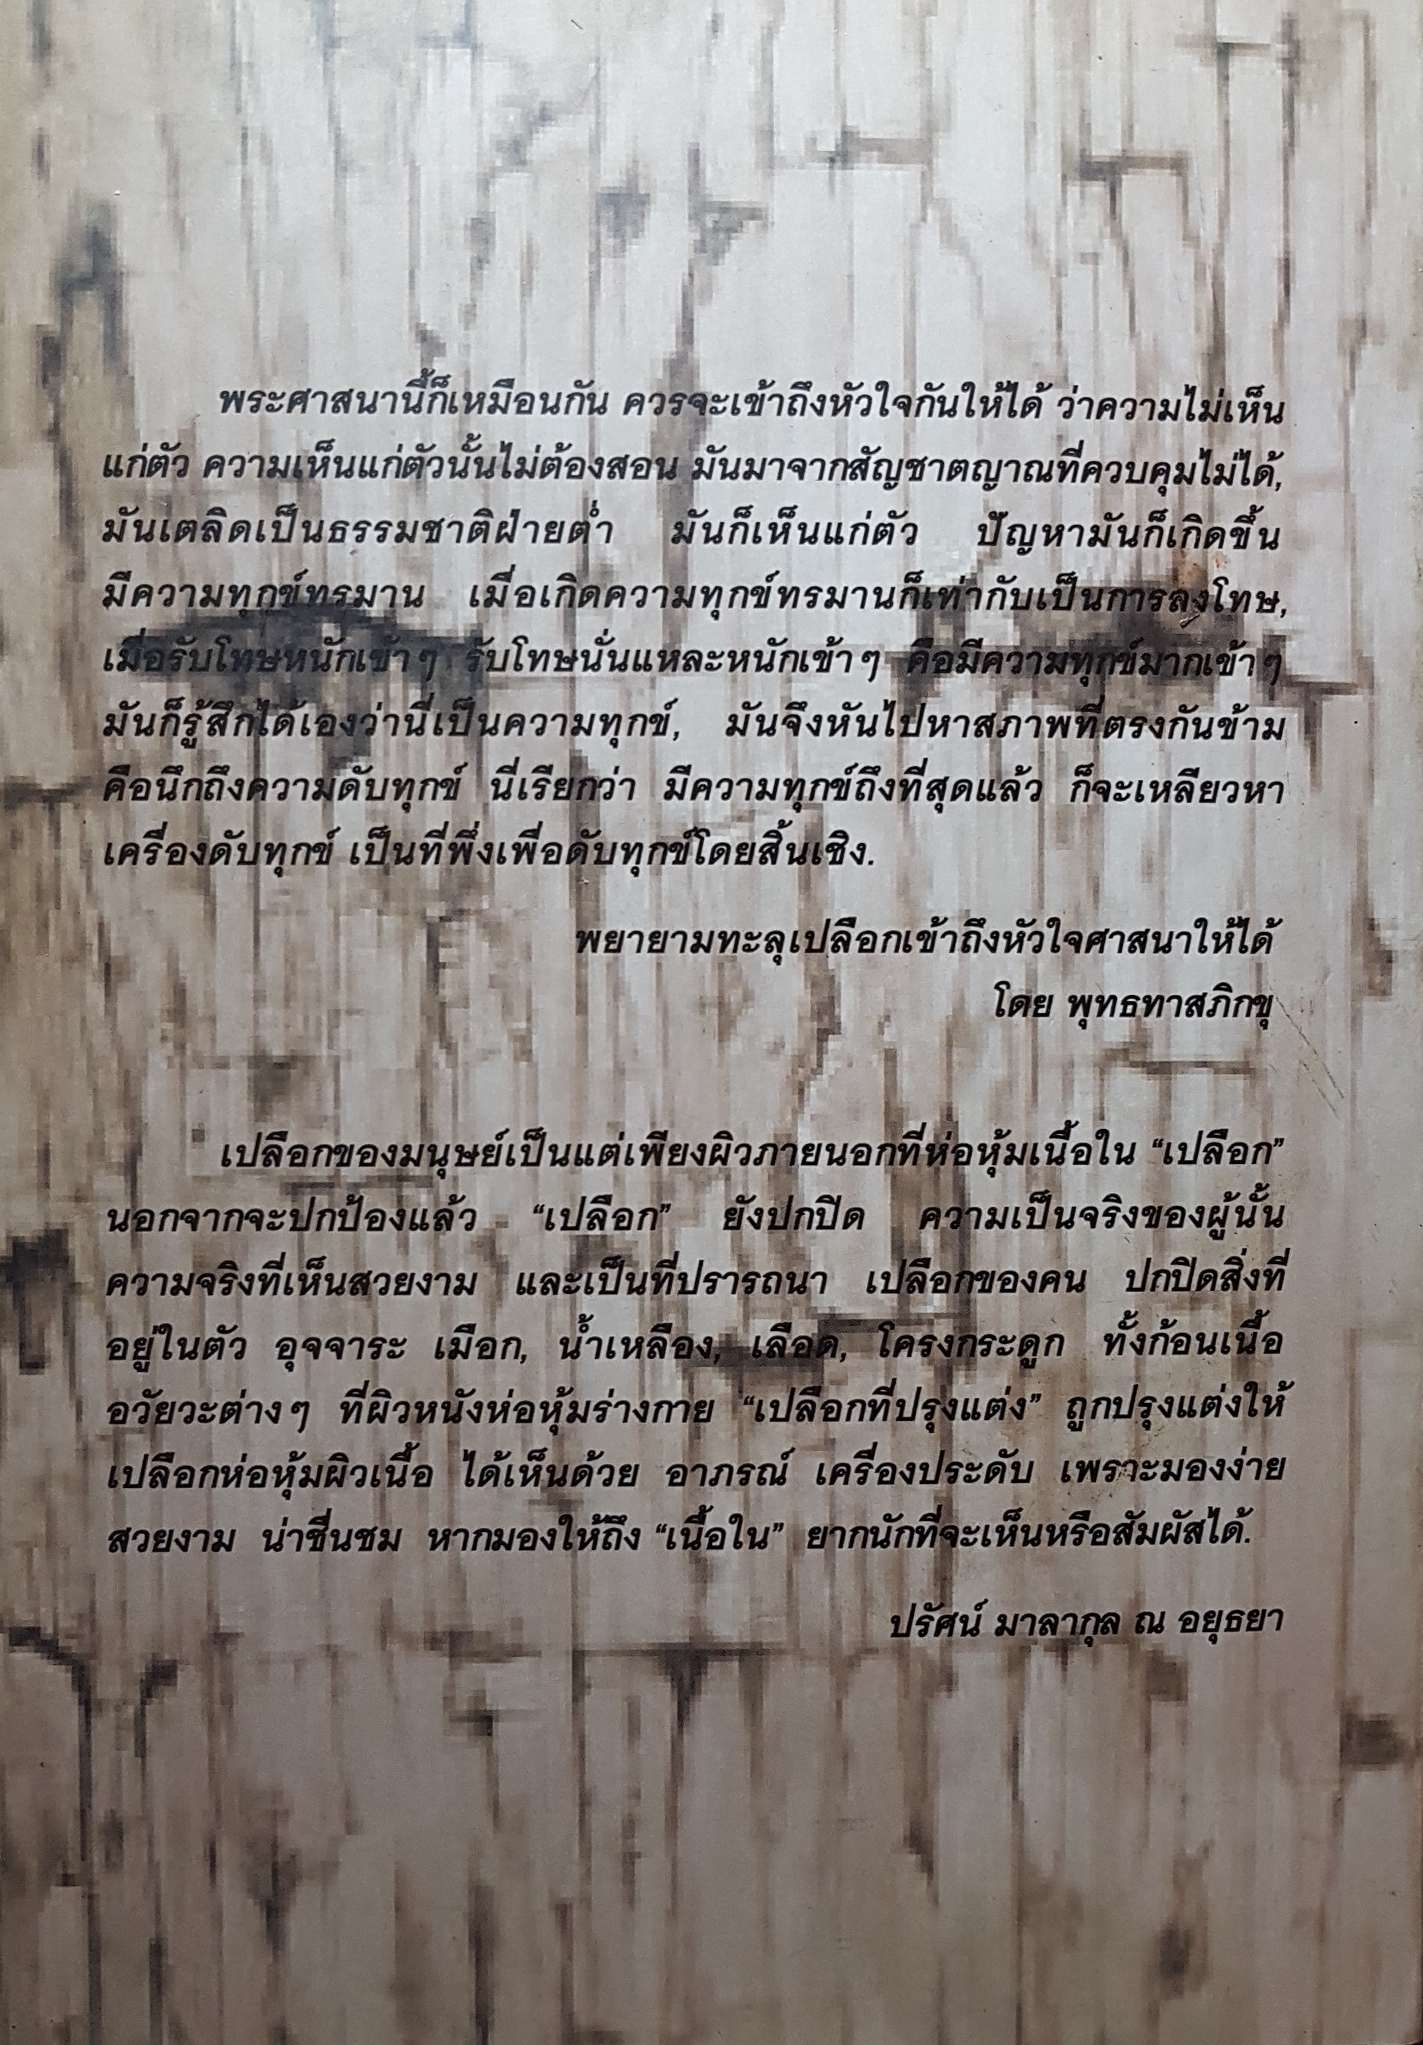 พระศาสนานี้ก็เหมือนกัน ควรจะเข้าถึงหัวใจกันให้ได้ ว่าความไม่เห็น
แก่ตัว ความเห็นแก่ตัวนั้นไม่ต้องสอน มันมาจากสัญชาตญาณที่ควบคุมไม่ได้,
มันเตลิดเป็นธรรมชาติฝ่ายต่ำ มันก็เห็นแก่ตัว ปัญหามันก็เกิดขึ้น
มีความทุกข์ทรมาน เมื่อเกิดความทุกข์ทรมานก็เท่ากับเป็นการลงโทษ,
เมื่อรับโทษหนักเข้าๆ รับโทษนั่นแหละหนักเข้าๆ คือมีความทุกข์มากเข้าๆ
มันก็รู้สึกได้เองว่านี่เป็นความทุกข์, มันจึงหันไปหาสภาพที่ตรงกันข้าม
คือนึกถึงความดับทุกข์ นี่เรียกว่า มีความทุกข์ถึงที่สุดแล้ว ก็จะเหลียวหา
เครื่องดับทุกข์ เป็นที่พึ่งเพื่อดับทุกข์โดยสิ้นเชิง.
พยายามทะลุเปลือกเข้าถึงหัวใจศาสนาให้ได้
โดย พุทธทาสภิกขุ
เปลือกของมนุษย์เป็นแต่เพียงผิวภายนอกที่ห่อหุ้มเนื้อใน “เปลือก”
นอกจากจะปกป้องแล้ว “เปลือก” ยังปกปิด ความเป็นจริงของผู้นั้น
ความจริงที่เห็นสวยงาม และเป็นที่ปรารถนา เปลือกของคน ปกปิดสิ่งที่
อยู่ในตัว อุจจาระ เมือก, น้ำเหลือง, เลือด, โครงกระดูก ทั้งก้อนเนื้อ
อวัยวะต่างๆ ที่ผิวหนังห่อหุ้มร่างกาย “เปลือกที่ปรุงแต่ง” ถูกปรุงแต่งให้
เปลือกห่อหุ้มผิวเนื้อ ได้เห็นด้วย อาภรณ์ เครื่องประดับ เพราะมองง่าย
สวยงาม น่าชื่นชม หากมองให้ถึง “เนื้อใน” ยากนักที่จะเห็นหรือสัมผัสได้.
ปรัศน์ มาลากุล ณ อยุธยา